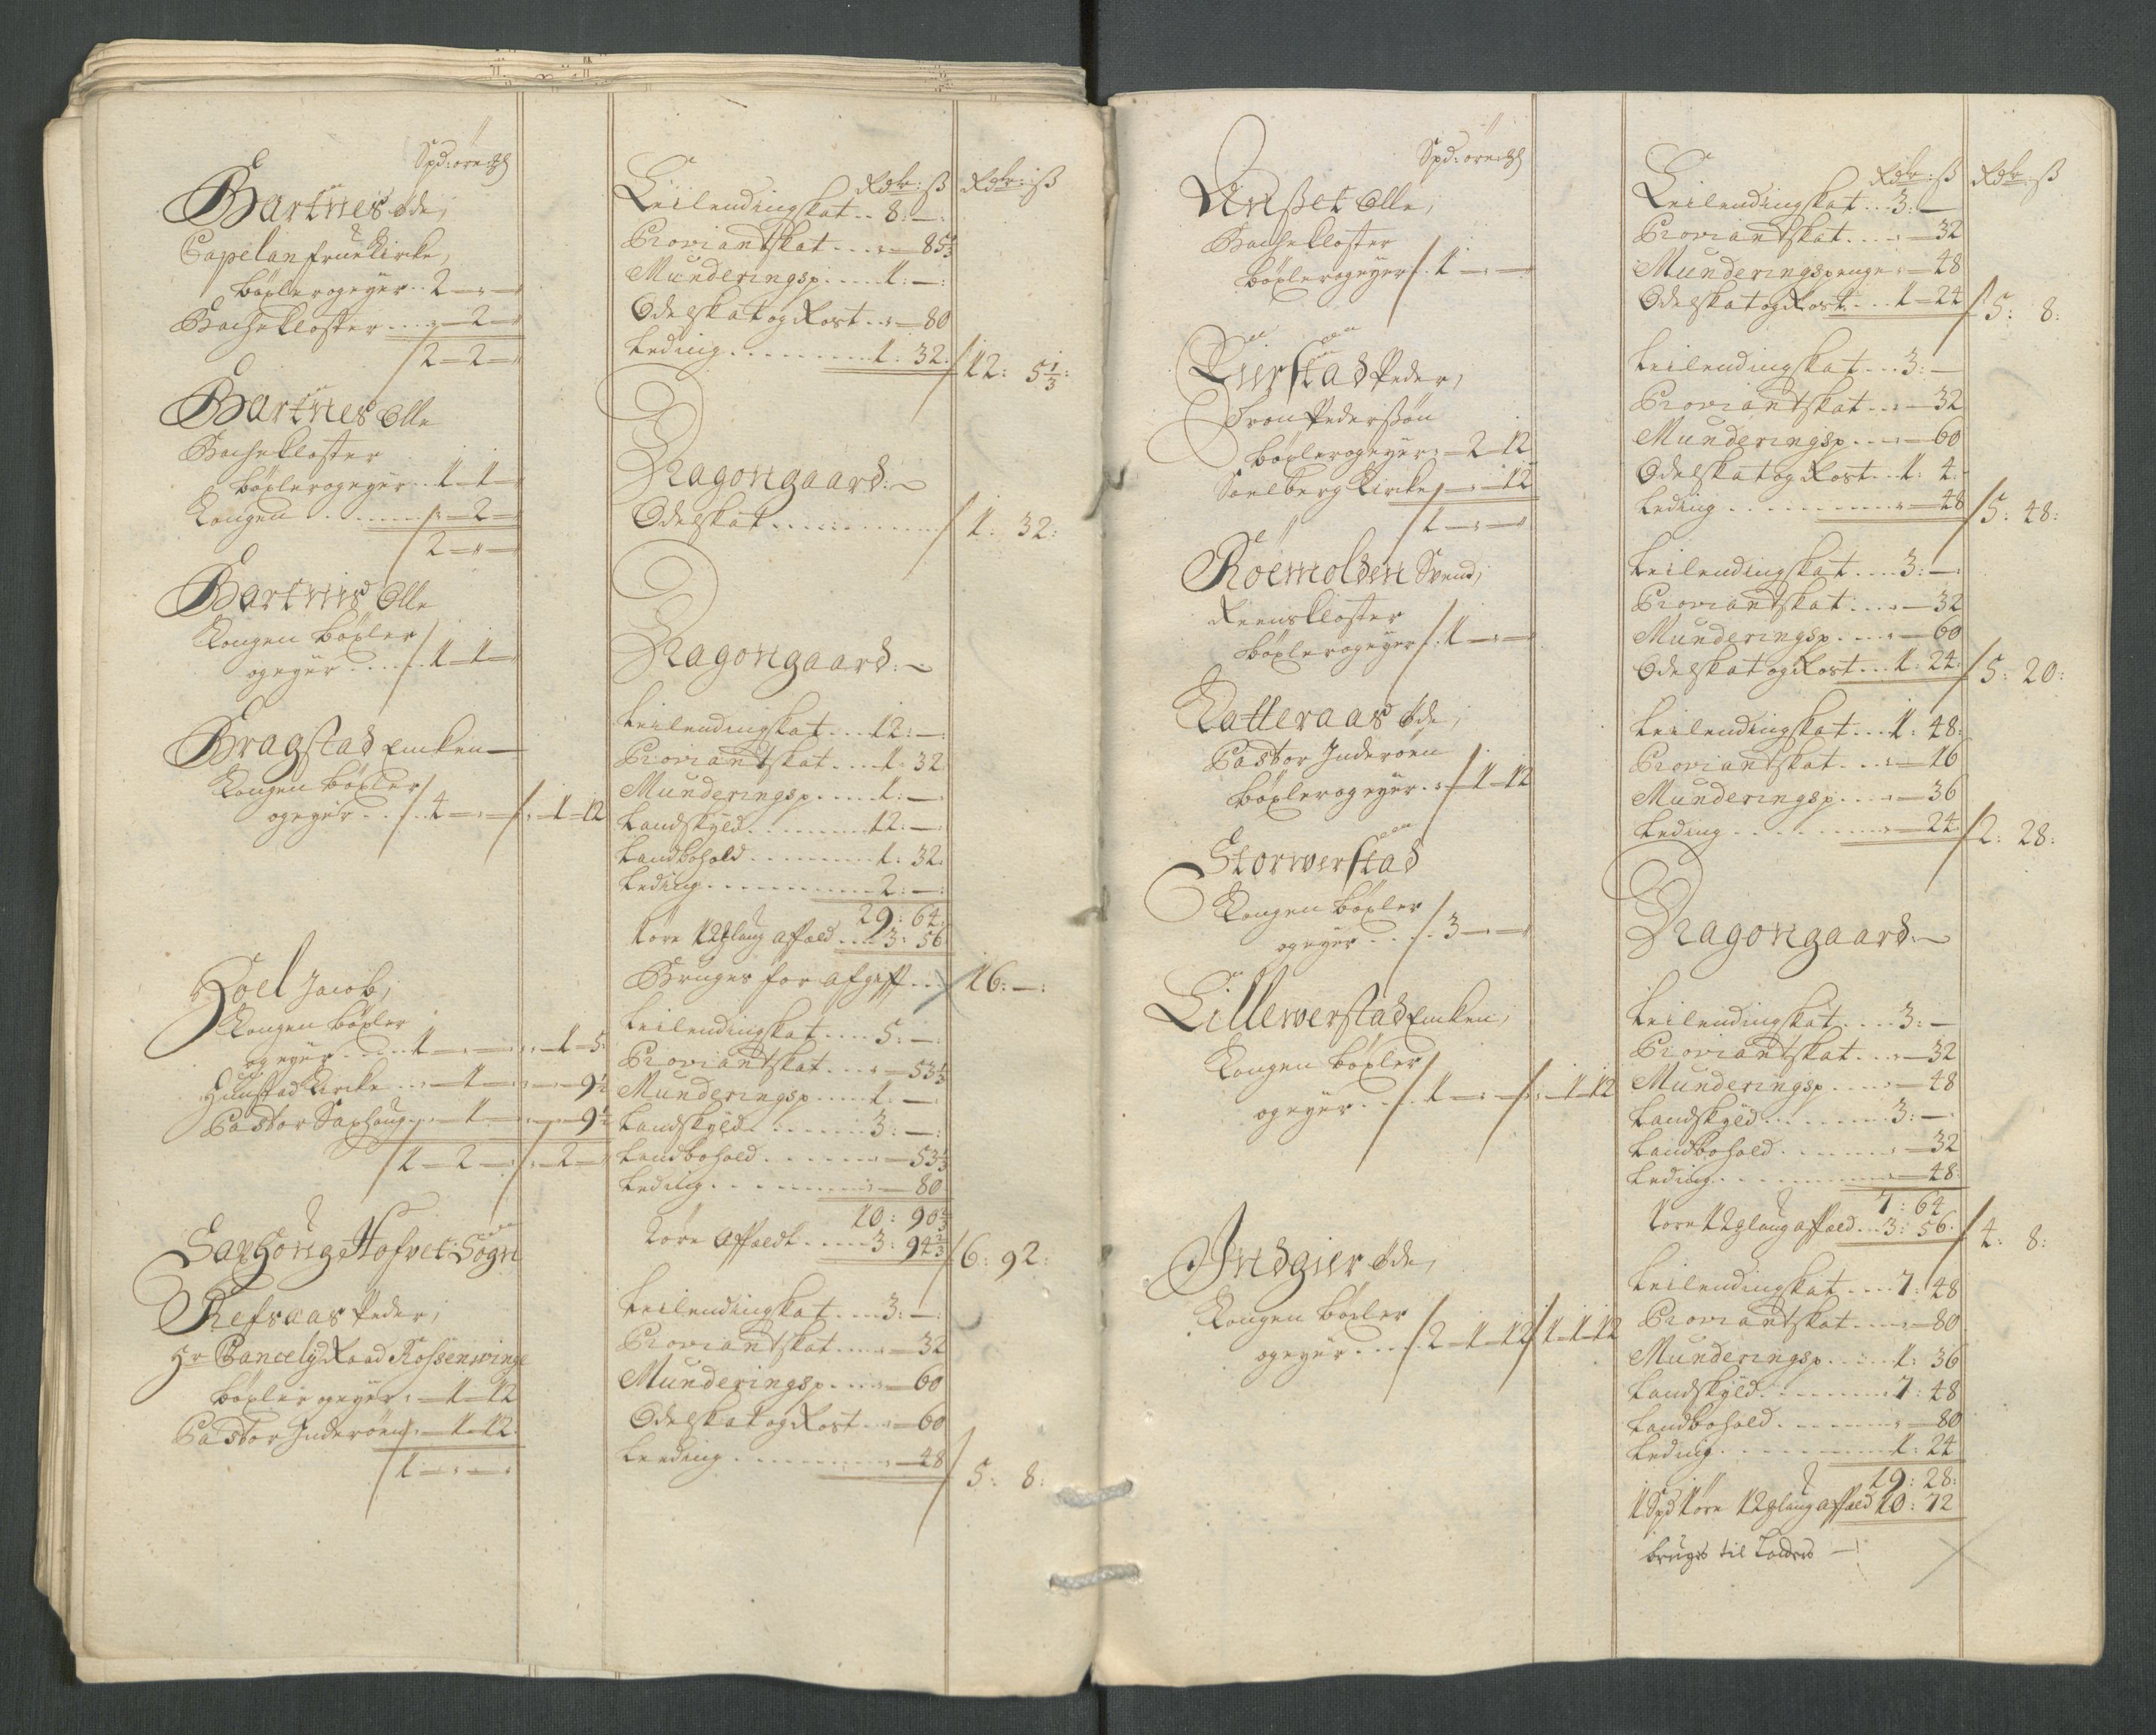 Spd: öre: ℔
Bartnes öde,
Capelan fruekircke,
böxler og eyer.. 2 — " —
Bachekloster.... " — 2 — "
2 — 2 — "
Bartnes Olle
Bachekloster
böxler og eyer.. 1 — 1 — "
Kongen ......... " — 2 — "
2 — " —
Bartnis Olle
Kongen böxler
og eyer ...... 1 — 1 — "
Bragstad Encken —
Kongen böxler
og eyer ... 4 — " — " 1 — 12
Hoel Jacob,
Kongen böxler
og eyer ..... 1 — " — " 1 — 5
Hustad Kircke ... " — 1 — " — 9½
Pastor Saxhaug.. " — 1 — " — 9½
1 — 2 — " — 2 — "
Saxhong Hofvet Sogn
Refsaas Peder,
Hr Cancelij Raad Rossenwinge
böxler og eyer: — 1 — 12
Pastor Inderöen. — 1 — 12.
1 — " — "
Rdlr: ß Rdlr: ß
Leilendingskat .. 8: — :
Proviantskat ... " — 85⅓
Munderingsp ..... 1: — :
Odelskat og Rost .. " — 80
Leding ......... 1: 32. 12: 5⅓:
Dragongaard: ~
Odelskat ............ 1: 32:
Dragongaard: ~
Leilendingskat ... 12: — :
Proviantskat .... 1: 32
Munderingsp ..... 1: — :
Landskyld ......... 12: — :
Landbohold ......... 1: 32:
Leding ............ 2: — :
29: 64:
1 öre 12 ℔ laug affald .... 3: 56
Bruges for afgift .. 16: — :
Leilendingskat .... 5: — :
Proviantskat ... " — 53⅓
Munderingsp ..... 1: — :
Landskyld ........ 3: — :
Landbohold ....... " — 53⅓
Leding .......... " — 80
10: 90⅔
1 öre affaldt ..... 3: 94⅔ 6: 92:
Leilendingskat .... 3: — :
Proviantskat .... " — 32
Munderingsp .... " — 60
Odelskat og Rost .. " — 60
Leeding .......... " — 48 5: 8:
Spd: öre: ℔
Unßet Olle,
Bachekloster
böxler og eyer . 1 — " — "
Rustad Peder,
Iver Pederßøn
böxler og eyer: — 2 — 12
Saelberg Kircke — " — 12
1 — " — "
Röemolden Svend,
Reenskloster
böxler og eyer . 1 — " — "
Katteraas öde,
Pastor Inderöen
böxler og eyer. " 1 — 12
Storwerstad
Kongen böxler
og eyer .... 3 — " — "
Lillewerstad Encken,
Kongen böxler
og eyer .... 1 — " — " 1 — 12
Indgier öde,
Kongen böxler
og eyer .... 2 — 1 — 12 1 — 1 — 12
Rdlr: ß Rdlr: ß
Leilendingskat .. 3: —
Proviantskat .... " — 32
Munderingspenge: — 48
Odelskat og Rost .. 1 — 24 5: 8:
Leilendingskat ... 3: —
Proviantskat ... " — 32
Munderingsp .... " — 60
Odelskat og Rost .. 1: 4:
Leding ........... " — 48 5: 48:
Leilendingskat .... 3: — :
Proviantskat .... " — 32
Munderingsp .... " — 60
Odelskat og Rost ... 1: 24: 5: 20:
Leilendingskat ... 1: 48:
Proviantskat ... " — 16
Munderingsp .... " — 36
Leding .......... " — 24. 2: 28:
Dragongaard: ~
Leilendingskat .... 3: —
Proviantskat ... " — 32
Munderingsp ..... " — 48
Landskyld ......... 3: — :
Landbohold ....... " — 32
Leding .......... " — 48:
7: 64
1 öre 12 ℔ laug affald ... 3: 56. 4: 8:
Leilendingskat .... 7: 48
Proviantskat .... " — 80
Munderingsp ..... 1: 36
Landskyld ......... 7: 48
Landbohold ....... " — 80
Leding .......... 1: 24
19: 28:
1 Spd 1 öre 12 ℔ laug affald 10: 72
bruges til